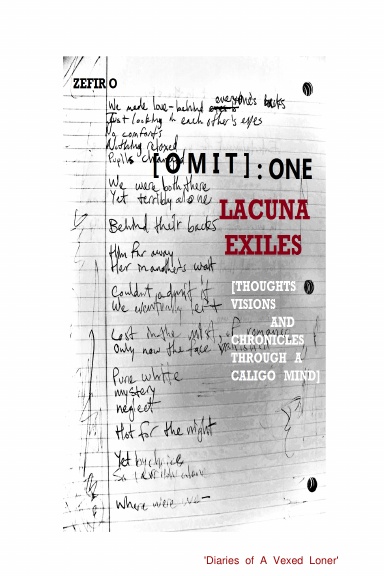 ZEFIRO
We made love - behind everyone's backs
Just looking in each other's eyes
No comforts
Nothing relaxed
Pupils changed
[OMIT]:ONE
We were both there
Yet terribly alone
LACUNA
EXILES
Behind their backs
Him far away
Her mother's wait
[THOUGHTS
VISIONS
AND
CHRONICLES
THROUGH A
CALIGO MIND]
Couldn't admit it
We eventually left
Lost in the midst of romance
Only now the face
Pure white
mystery
neglect
Hot for the night
Yet by
Where were we-
'Diaries of A Vexed Loner'